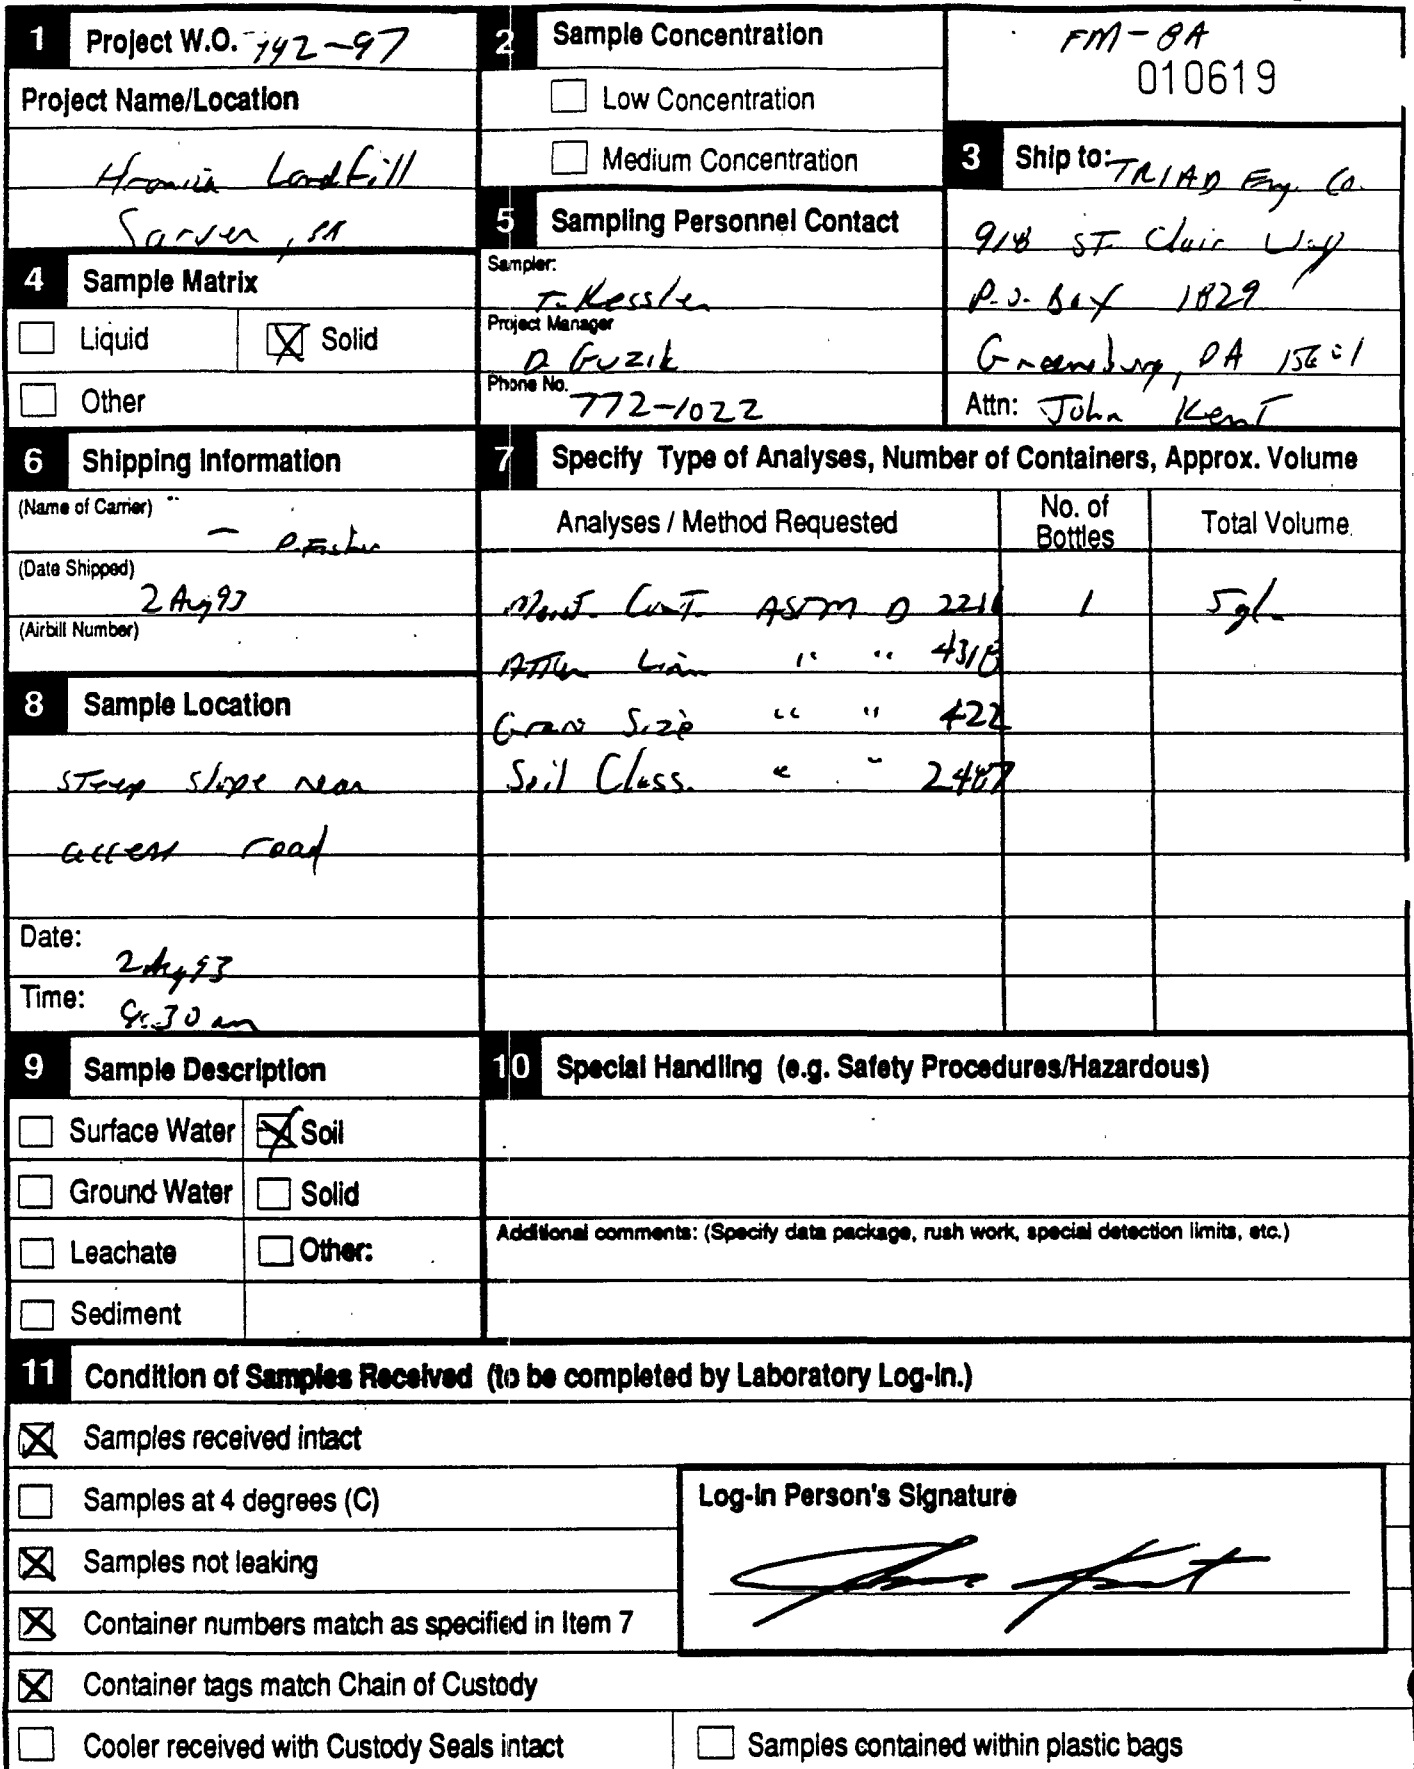 1 Project W.O. 742-97
Project Name/Location
Landfill
Sarver, PA
2 Sample Concentration
Low Concentration
Medium Concentration
FM-8A
010619
3 Ship to: TRIAD Eng. Co.
918 ST. Clair Way
P.O. Box 1829
Greensburg, PA 15601
Attn: John Kent
4 Sample Matrix
Liquid
Solid
Other
5 Sampling Personnel Contact
Sampler:
T. Kessler
Project Manager
D. Guzik
Phone No.
772-1022
6 Shipping Information
(Name of Carrier)
(Date Shipped)
2 Aug 93
(Airbill Number)
7 Specify Type of Analyses, Number of Containers, Approx. Volume
Analyses / Method Requested
No. of Bottles
Total Volume
Moist. Cont. ASTM D 2216 1 5 gl.
Atter Lim " " 4318
Grain Size " " 422
Soil Class. " " 2487
8 Sample Location
Steep slope near
access road
Date:
2 Aug 93
Time:
:30 am
9 Sample Description
Surface Water
Soil
Ground Water
Solid
Leachate
Other:
Sediment
10 Special Handling (e.g. Safety Procedures/Hazardous)
Additional comments: (Specify data package, rush work, special detection limits, etc.)
11 Condition of Samples Received (to be completed by Laboratory Log-in.)
Samples received intact
Samples at 4 degrees (C)
Samples not leaking
Container numbers match as specified in Item 7
Container tags match Chain of Custody
Cooler received with Custody Seals intact
Samples contained within plastic bags
Log-in Person's Signature